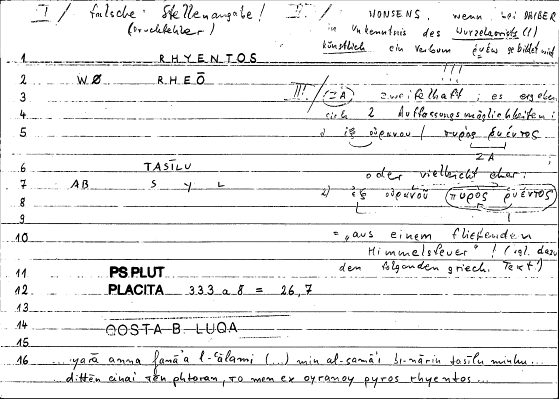 I / falsche Stellenangabe!
(Druckfehler)
II / NONSENS, wenn bei DAIBER
in Unkenntnis des Wurzelaorists (!)
künstlich ein Verbum ῥυέω gebildet wird
!!!
1 RHYENTOS
2 WØ RHEŌ
III! / (ZA) zweifelhaft; es ergeben
3
4 sich 2 Auffassungsmöglichkeiten:
5 1) ἐξ οὐρανοῦ / πυρὸς ῥυέντος
ZA ;
6 TASĪLU
oder vielleicht eher:
7 AB S Y L
2) ἐξ οὐρανοῦ (πυρὸς ῥυέντος)
8
9
= „aus einem fließenden
10 Himmelsfeuer"! (vgl. dazu
11 PS PLUT
den folgenden griech. Text!)
12 PLACITA 333 a 8 = 26,7
13
14
QOSTA B. LUQA
15
16 ...yarā anna fanā'a l-ʿālami (...) min al-samā'i bi-nārin tasīlu minhu...
...dittēn einai tēn phtoran, to men ex oyranoy pyros rhyentos...